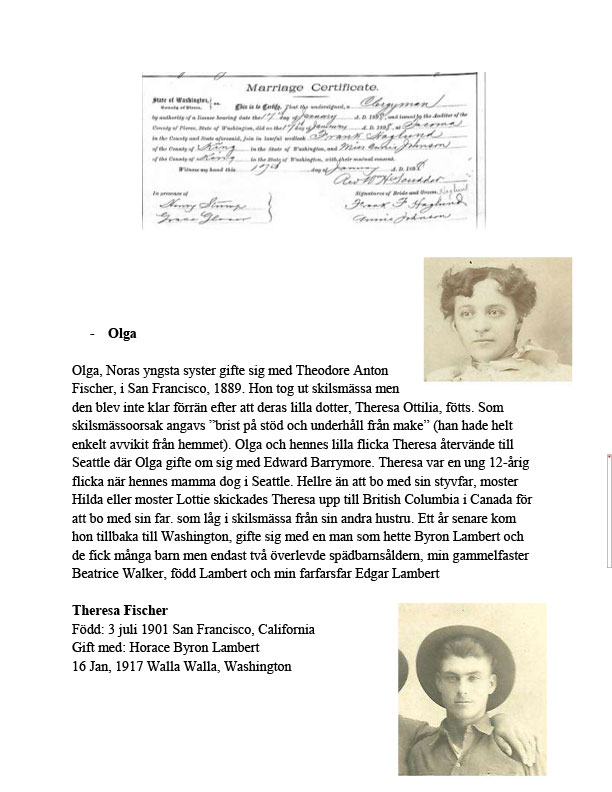 Marriage Certificate.
State of Washington,
County of Pierce, } ss. This is to Certify, That the undersigned, a Clergyman
by authority of a license bearing date the 17th day of January A. D. 1898, and issued by the Auditor of the
County of Pierce, State of Washington, did on the 17th day of January A. D. 1898, at Tacoma
in the County and State aforesaid, join in lawful wedlock Frank Haglund
of the County of King in the State of Washington, and Miss Annie Johnson
of the County of King in the State of Washington, with their mutual consent.
Witness my hand this day of January A. D. 1898
Rev W H Scudder
In presence of
Signatures of Bride and Groom.
Henry Stump
Frank F Haglund
Grace Glover
Annie Johnson
- Olga
Olga, Noras yngsta syster gifte sig med Theodore Anton
Fischer, i San Francisco, 1889. Hon tog ut skilsmässa men
den blev inte klar förrän efter att deras lilla dotter, Theresa Ottilia, fötts. Som
skilsmässoorsak angavs ”brist på stöd och underhåll från make” (han hade helt
enkelt avvikit från hemmet). Olga och hennes lilla flicka Theresa återvände till
Seattle där Olga gifte om sig med Edward Barrymore. Theresa var en ung 12-årig
flicka när hennes mamma dog i Seattle. Hellre än att bo med sin styvfar, moster
Hilda eller moster Lottie skickades Theresa upp till British Columbia i Canada för
att bo med sin far. som låg i skilsmässa från sin andra hustru. Ett år senare kom
hon tillbaka till Washington, gifte sig med en man som hette Byron Lambert och
de fick många barn men endast två överlevde spädbarnsåldern, min gammelfaster
Beatrice Walker, född Lambert och min farfarsfar Edgar Lambert
Theresa Fischer
Född: 3 juli 1901 San Francisco, California
Gift med: Horace Byron Lambert
16 Jan, 1917 Walla Walla, Washington